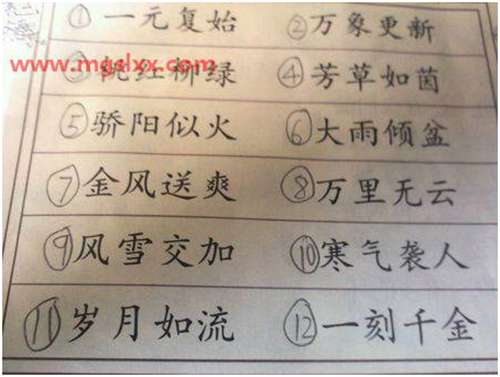 ①一元复始 ②万象更新
www.mgslxx.com
③桃红柳绿 ④芳草如茵
⑤骄阳似火 ⑥大雨倾盆
⑦金风送爽 ⑧万里无云
⑨风雪交加 ⑩寒气袭人
⑪岁月如流 ⑫一刻千金